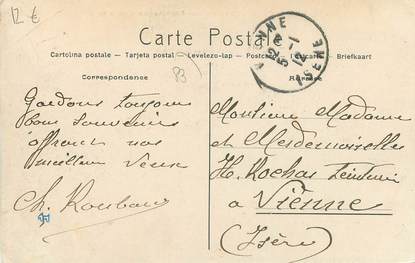 12 €
Carte Postale
Cartolina postale — Tarjeta postal — Levelezo-lap — Postkarte — Briefkaart
Correspondance
Adresse
VIENNE
ISERE
Gardons toujours
bons souvenirs
offrons nos
meilleurs vœux
Ch. Roubaud
Monsieur Madame
et Mesdemoiselles
H. Rochas Teinturier
à
Vienne
(Isère)